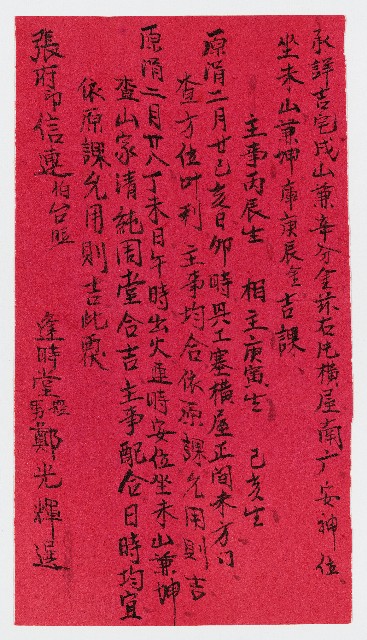 承詳吉宅戌山兼辛分金茲右片橫屋南广安神位
坐未山兼坤庫庚辰金吉課
主事丙辰生 相主庚寅生 己亥生
原涓二月廿乙亥日卯時興工塞橫屋正間未方门
查方位叶利 主事均合依原課允用則吉
原涓二月廿八丁未日午時出火連時安位坐未山兼坤
查山家清純周堂合吉主事配合日時均宜
依原課允用則吉此覆
張府印信連柏台照
逢時堂男鄭光輝選